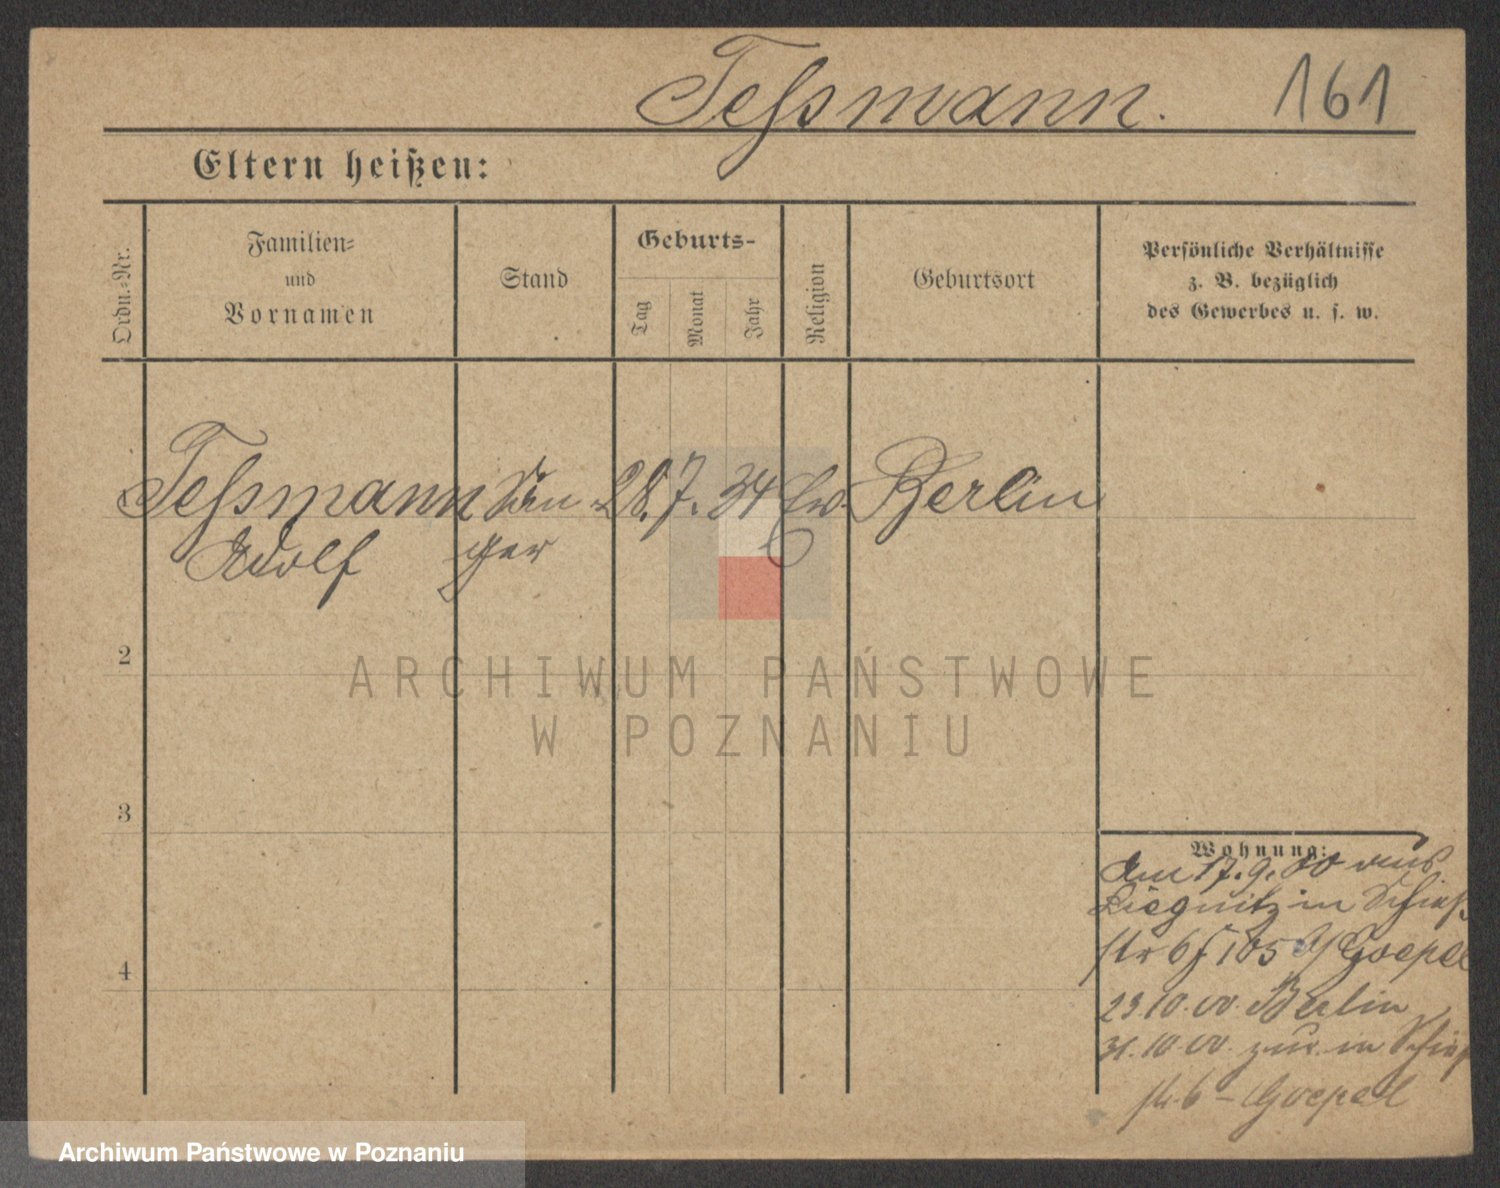 Teſsmann. 161
Eltern heißen:
Ordn.=Nr.
Familien=
und
Vornamen
Stand
Geburts-
Tag
Monat
Jahr
Religion
Geburtsort
Persönliche Verhältnisse
z. B. bezüglich
des Gewerbes u. s. w.
Teſsmann Sän- 28. 7. 34 Ev. Berlin
Adolf ger
2
ARCHIWUM PAŃSTWOWE
W POZNANIU
3
Wohnung:
Am 17.9.00 aus
Liegnitz in Schieß
str 6 185 Goepel
29.10.00. Berlin
31.10.00. zur. in Schieß
str. 6 - Goepel
4
Archiwum Państwowe w Poznaniu